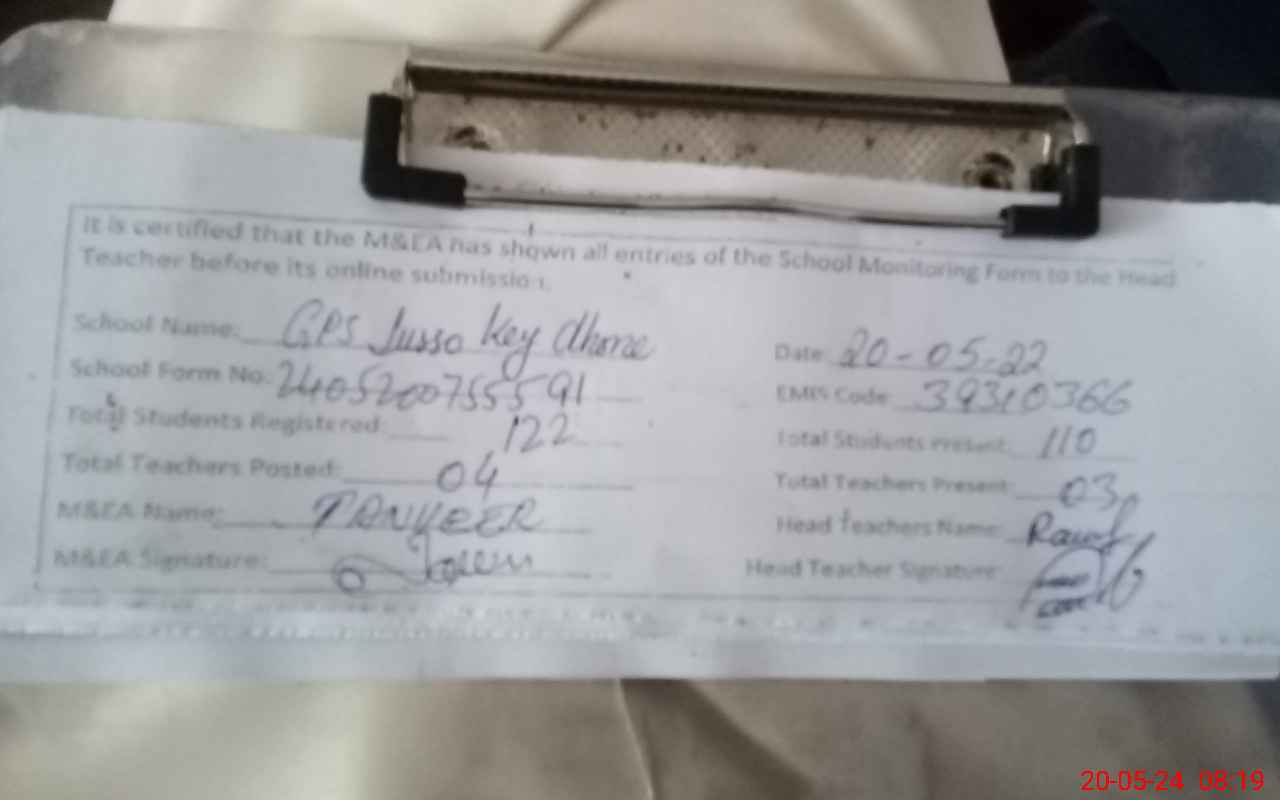 It is certified that the M&EA has shown all entries of the School Monitoring Form to the Head
Teacher before its online submission.
School Name: GPS Jusso Key Dhone
Date: 20-05-22
School Form No: 24052007555591
EMIS Code: 39310366
Total Students Registered: 122
Total Students Present: 110
Total Teachers Posted: 04
Total Teachers Present: 03
M&EA Name: TANVEER
Head Teachers Name: Rauf
M&EA Signature:
Head Teacher Signature:
20-05-24 08:19